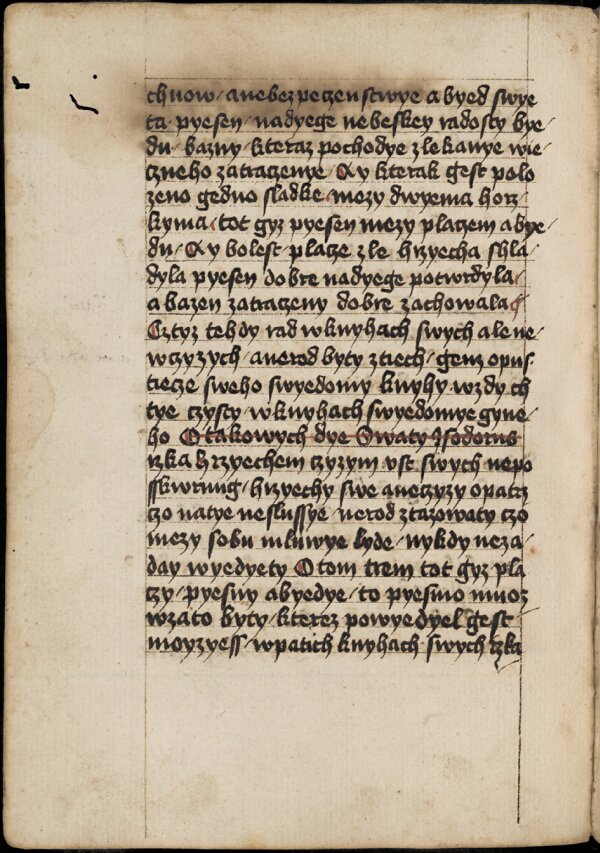 chuow / anebezpeczenstwye abyed swye
ta pyesen / nadyege nebeskey radosty bye /
du / bazny / kteraz pochodye zlekanye wie
czneho zatraczenye / Ay kterak gest polo
zeno gedno sladke / mezy dwyema horz
kyma / tot gyz pyesen mezy placzem abye /
du / Ay bolest placze zle hrzyecha shla /
dyla pyesen dobre nadyege potwrdyla /
a bazen zatraczeny dobre zachowala
Cztyz tehdy rad wknyhach swych alene /
wczyzych / anerod byty ztiech / genz opus /
tiecze sweho swyedomy knyhy wzdy ch
tye czysty wknyhach swyedomye gyne /
ho O takowych dye Swaty Isodorus
rzka hrzyechem czyzym vst swych nepo
sskwrnug / hrzyechy swe aneczyzy opatrz
czo natye neslussye / nerod ztazowaty czo
mezy sobu mluwye lyde / nykdy neza /
day wyedyety O tom trem tot gyz pla
czy / pyesny abyedye / to pyesmo muoz
wzato byty / kterez powyedyel gest
moyzyess / wpatich knyhach swych rzka